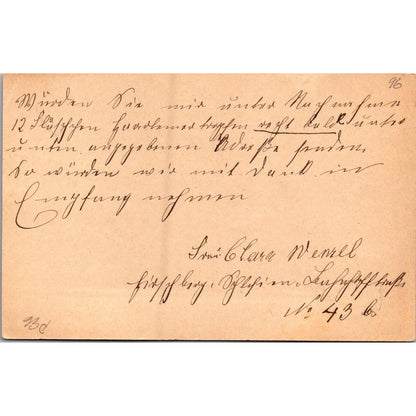 96
Würden Sie mir unter Nachnahme
12 Fläschchen Haarlemer tropfen recht bald unter
unten angegebenen Adreße senden.
So würden wir mit Dank in
Empfang nehmen
Frau Clara Wenzel
Hirschberg, Schlesien, Bahnhofstraße
No 43 b
93d